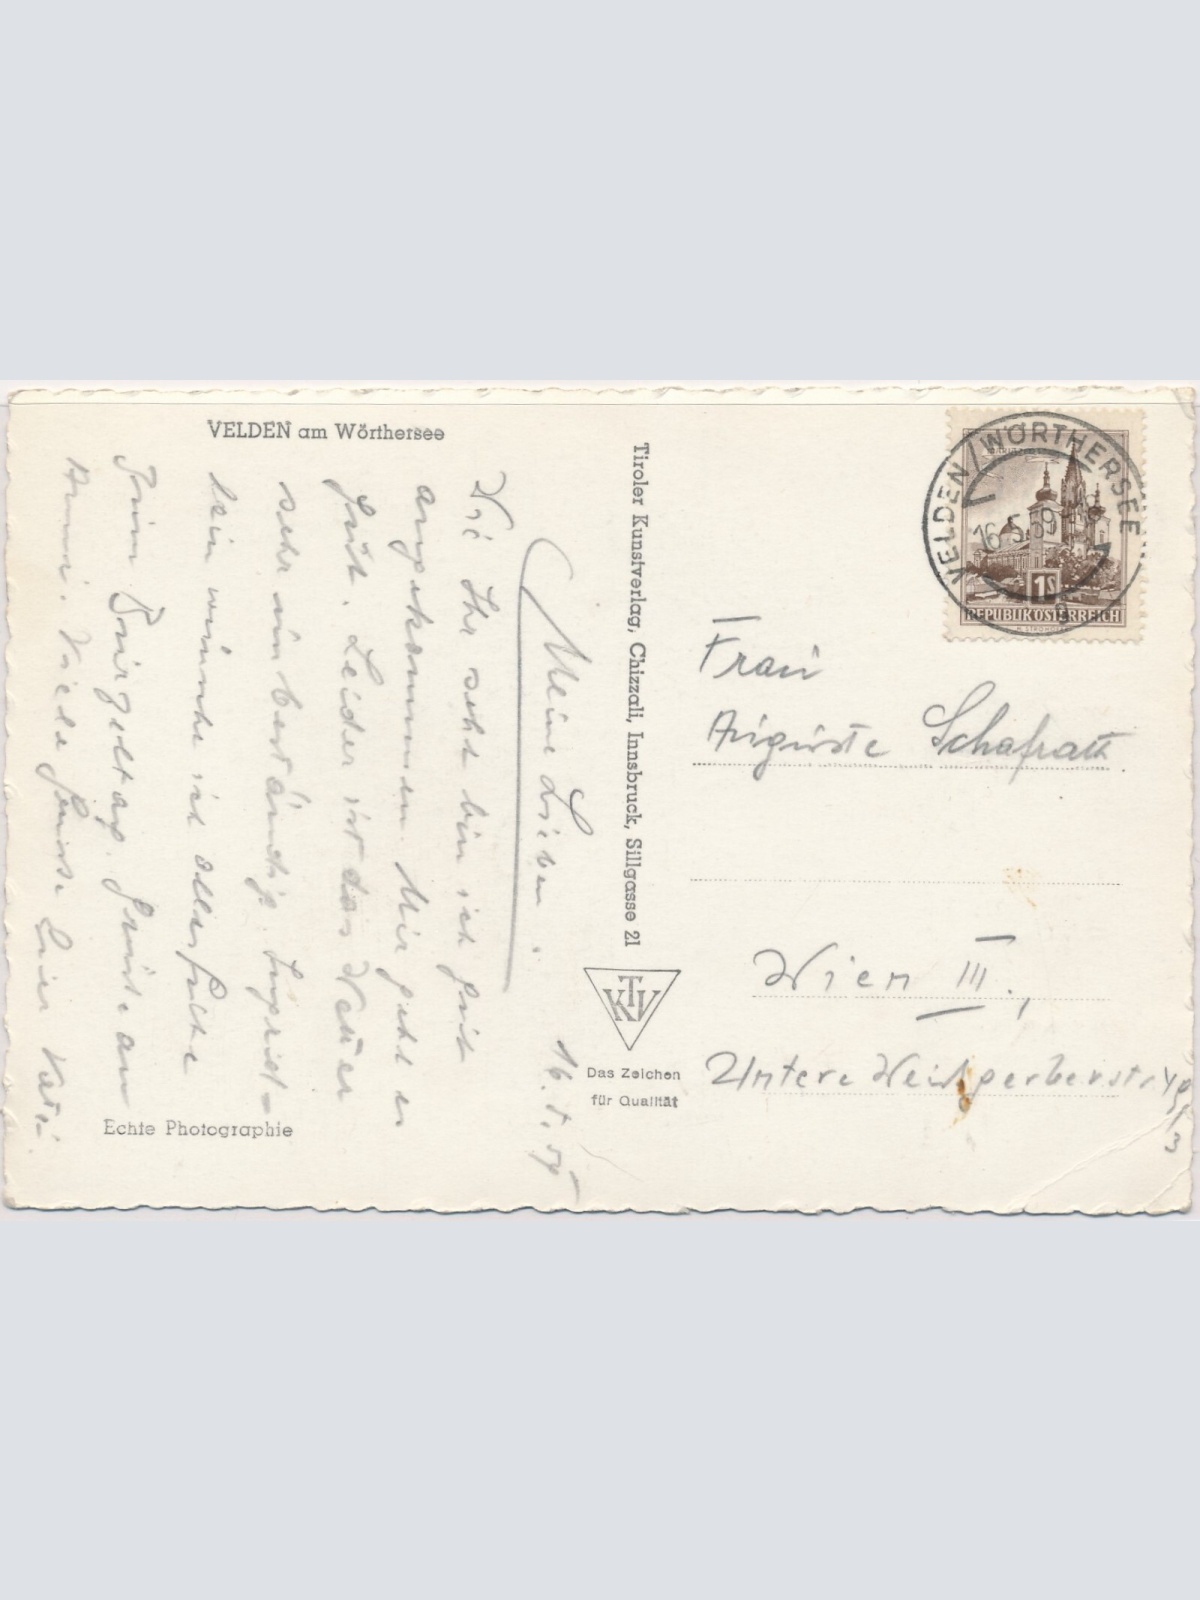 VELDEN am Wörthersee
16. 5. 59
Meine Lieben.
Wie Ihr seht bin ich gut
angekommen. Mir geht es
gut. Leider ist das Wetter
sehr unbeständig. Ingrid-
lein wünsche ich alles Gute
zum Grüße an
Anni. Viele Grüße Eure Kati
Echte Photographie
Tiroler Kunstverlag, Chizzali, Innsbruck, Sillgasse 21
KTV
Das Zeichen
für Qualität
VELDEN/WÖRTHERSEE
16.5.59
1S
REPUBLIK ÖSTERREICH
Frau
Auguste Schafrath
Wien III.,
Untere Weißgerberstr.